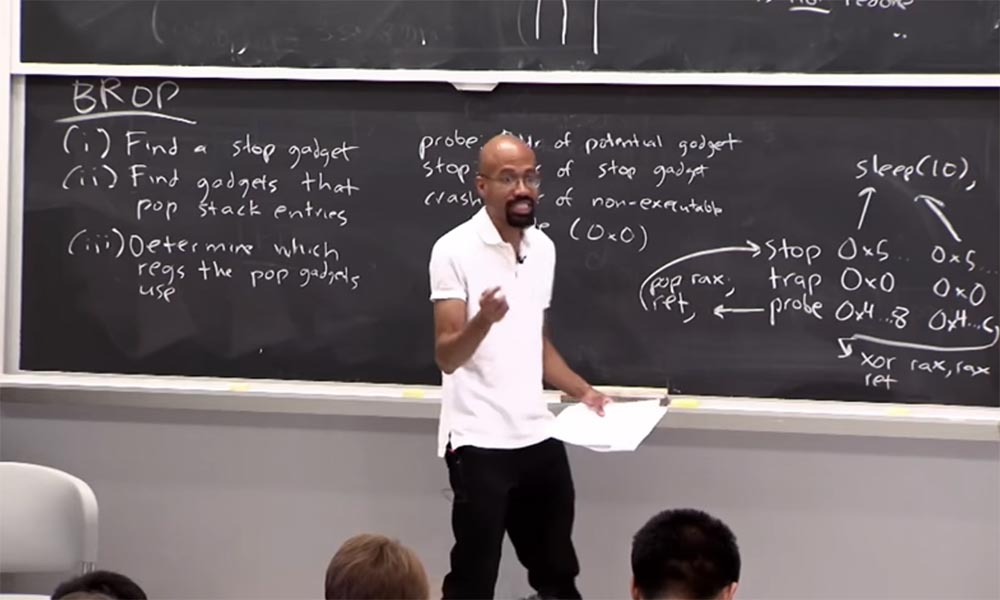 BROP
(i) Find a stop gadget
(ii) Find gadgets that
pop stack entries
(iii) Determine which
regs the pop gadgets
use
probe: of potential gadget
stop of stop gadget
crash of non-executable
(0x0)
sleep(10),
stop 0x5... 0x5...
trap 0x0 0x0
probe 0x4...8 0x4...
pop rax;
ret;
xor rax, rax
ret